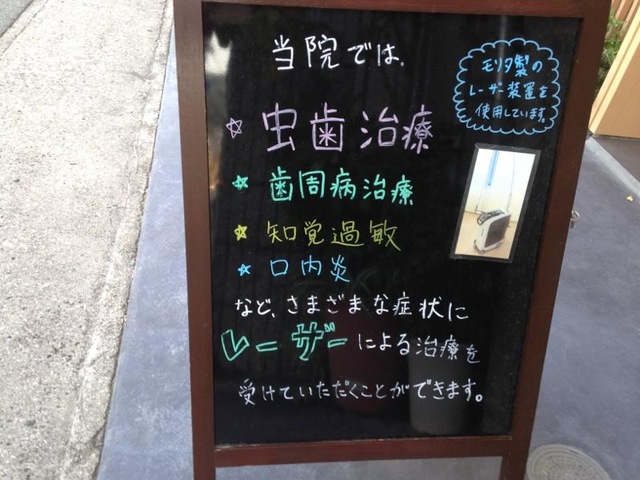 当院では、
モリタ製の
レーザー装置を
使用しています。
☆ 虫歯治療
☆ 歯周病治療
☆ 知覚過敏
☆ 口内炎
など、さまざまな症状に
レーザーによる治療を
受けていただくことができます。